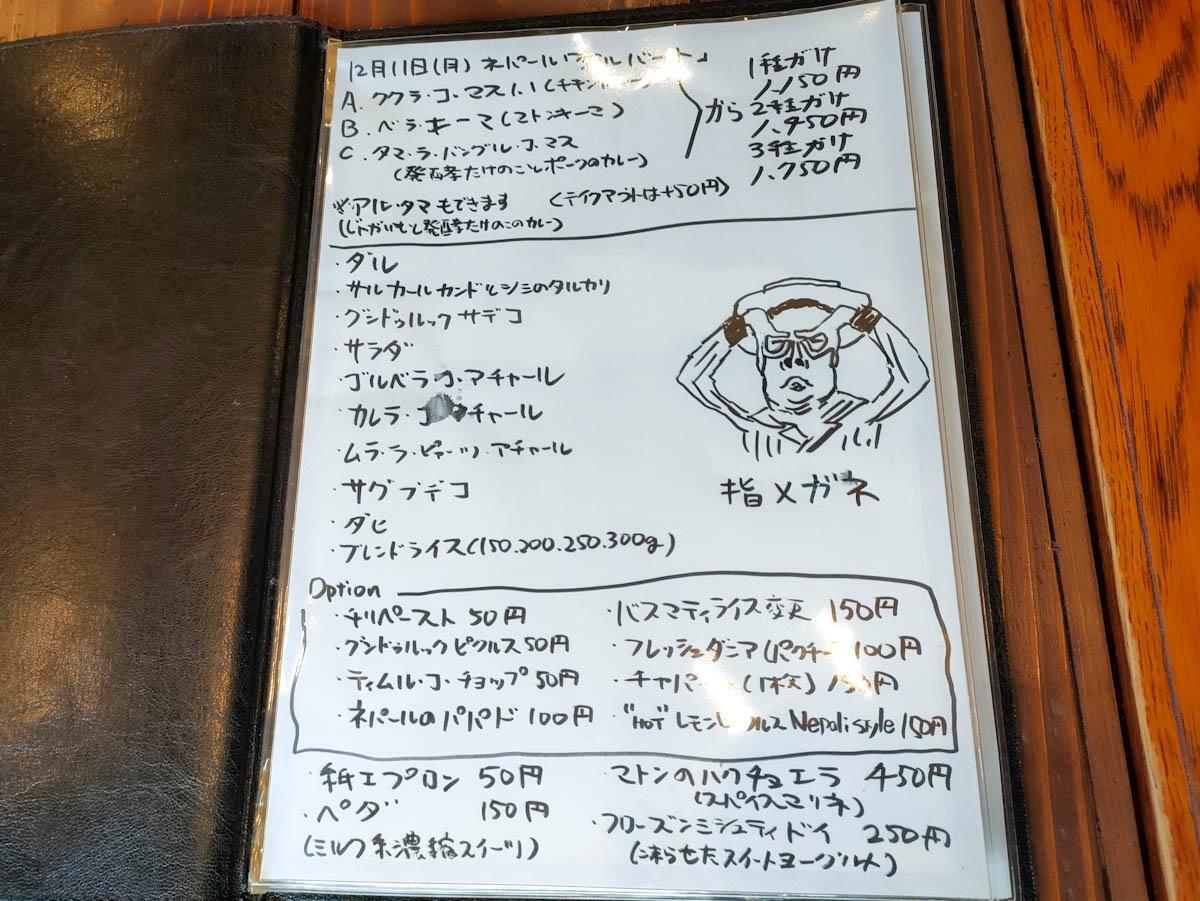 12月11日(月) ネパール「ダルバート」
A. ククラ・コ・マス (チキンカレー)
B. ベラ・キーマ(マトンキーマ)
C. タマ・ラ・バングル・コ・マス
(発酵たけのことポークのカレー)
から
1種がけ
1,150円
2種がけ
1,450円
3種がけ
1,750円
※アル・タマもできます (テイクアウトは+50円)
(じゃがいもと発酵たけのこのカレー)
・ダル
・サルカールカンドとシミのタルカリ
・グンドゥルック サデコ
・サラダ
・ゴルベラ・コ・アチャール
・カレラ・コ・アチャール
・ムラ・ラ・ピャーツ・アチャール
・サグ ブデコ
・ダヒ
・ブレンドライス(150.200.250.300g)
指メガネ
Option
・チリペースト 50円
・グンドゥルック ピクルス 50円
・ティムル・コ・チョップ 50円
・ネパールのパパド 100円
・バスマティライス変更 150円
・フレッシュダニア(パクチー 100円
・チャパティ(1枚) 150円
・"HOT" レモンピクルス Nepali style 150円
・紙エプロン 50円
・ペダ 150円
(ミルク系濃縮スイーツ)
・マトンのハクチョエラ 450円
(スパイスマリネ)
・フローズンミシュティドイ 250円
(凍らせたスイートヨーグルト)